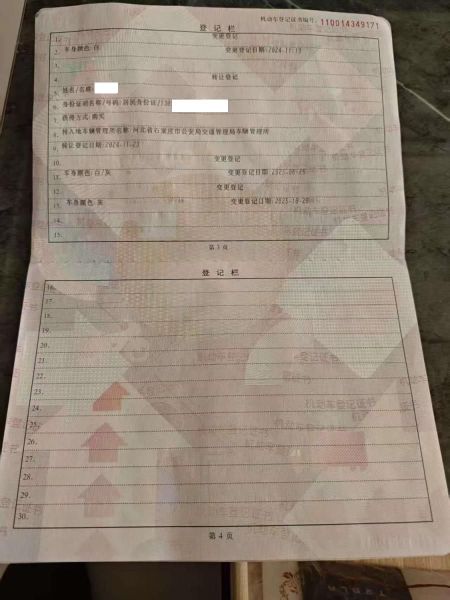 机动车登记证书编号：110014349171
登记栏
1. 变更登记
2. 车身颜色:白 变更登记日期:2024-11-13
3.
4. 转让登记
5. 姓名/名称:
6. 身份证明名称/号码:居民身份证/130
7. 获得方式:购买
8. 转入地车辆管理所名称:河北省石家庄市公安局交通管理局车辆管理所
9. 转让登记日期:2024-11-23
10. 变更登记
11. 车身颜色:白/灰 变更登记日期:2025-06-
12. 变更登记
13. 车身颜色:灰 变更登记日期:2025-10-20
14.
15.
第3页
登记栏
16.
17.
18.
19.
20.
21.
22.
23.
24.
25.
26.
27.
28.
29.
30.
第4页